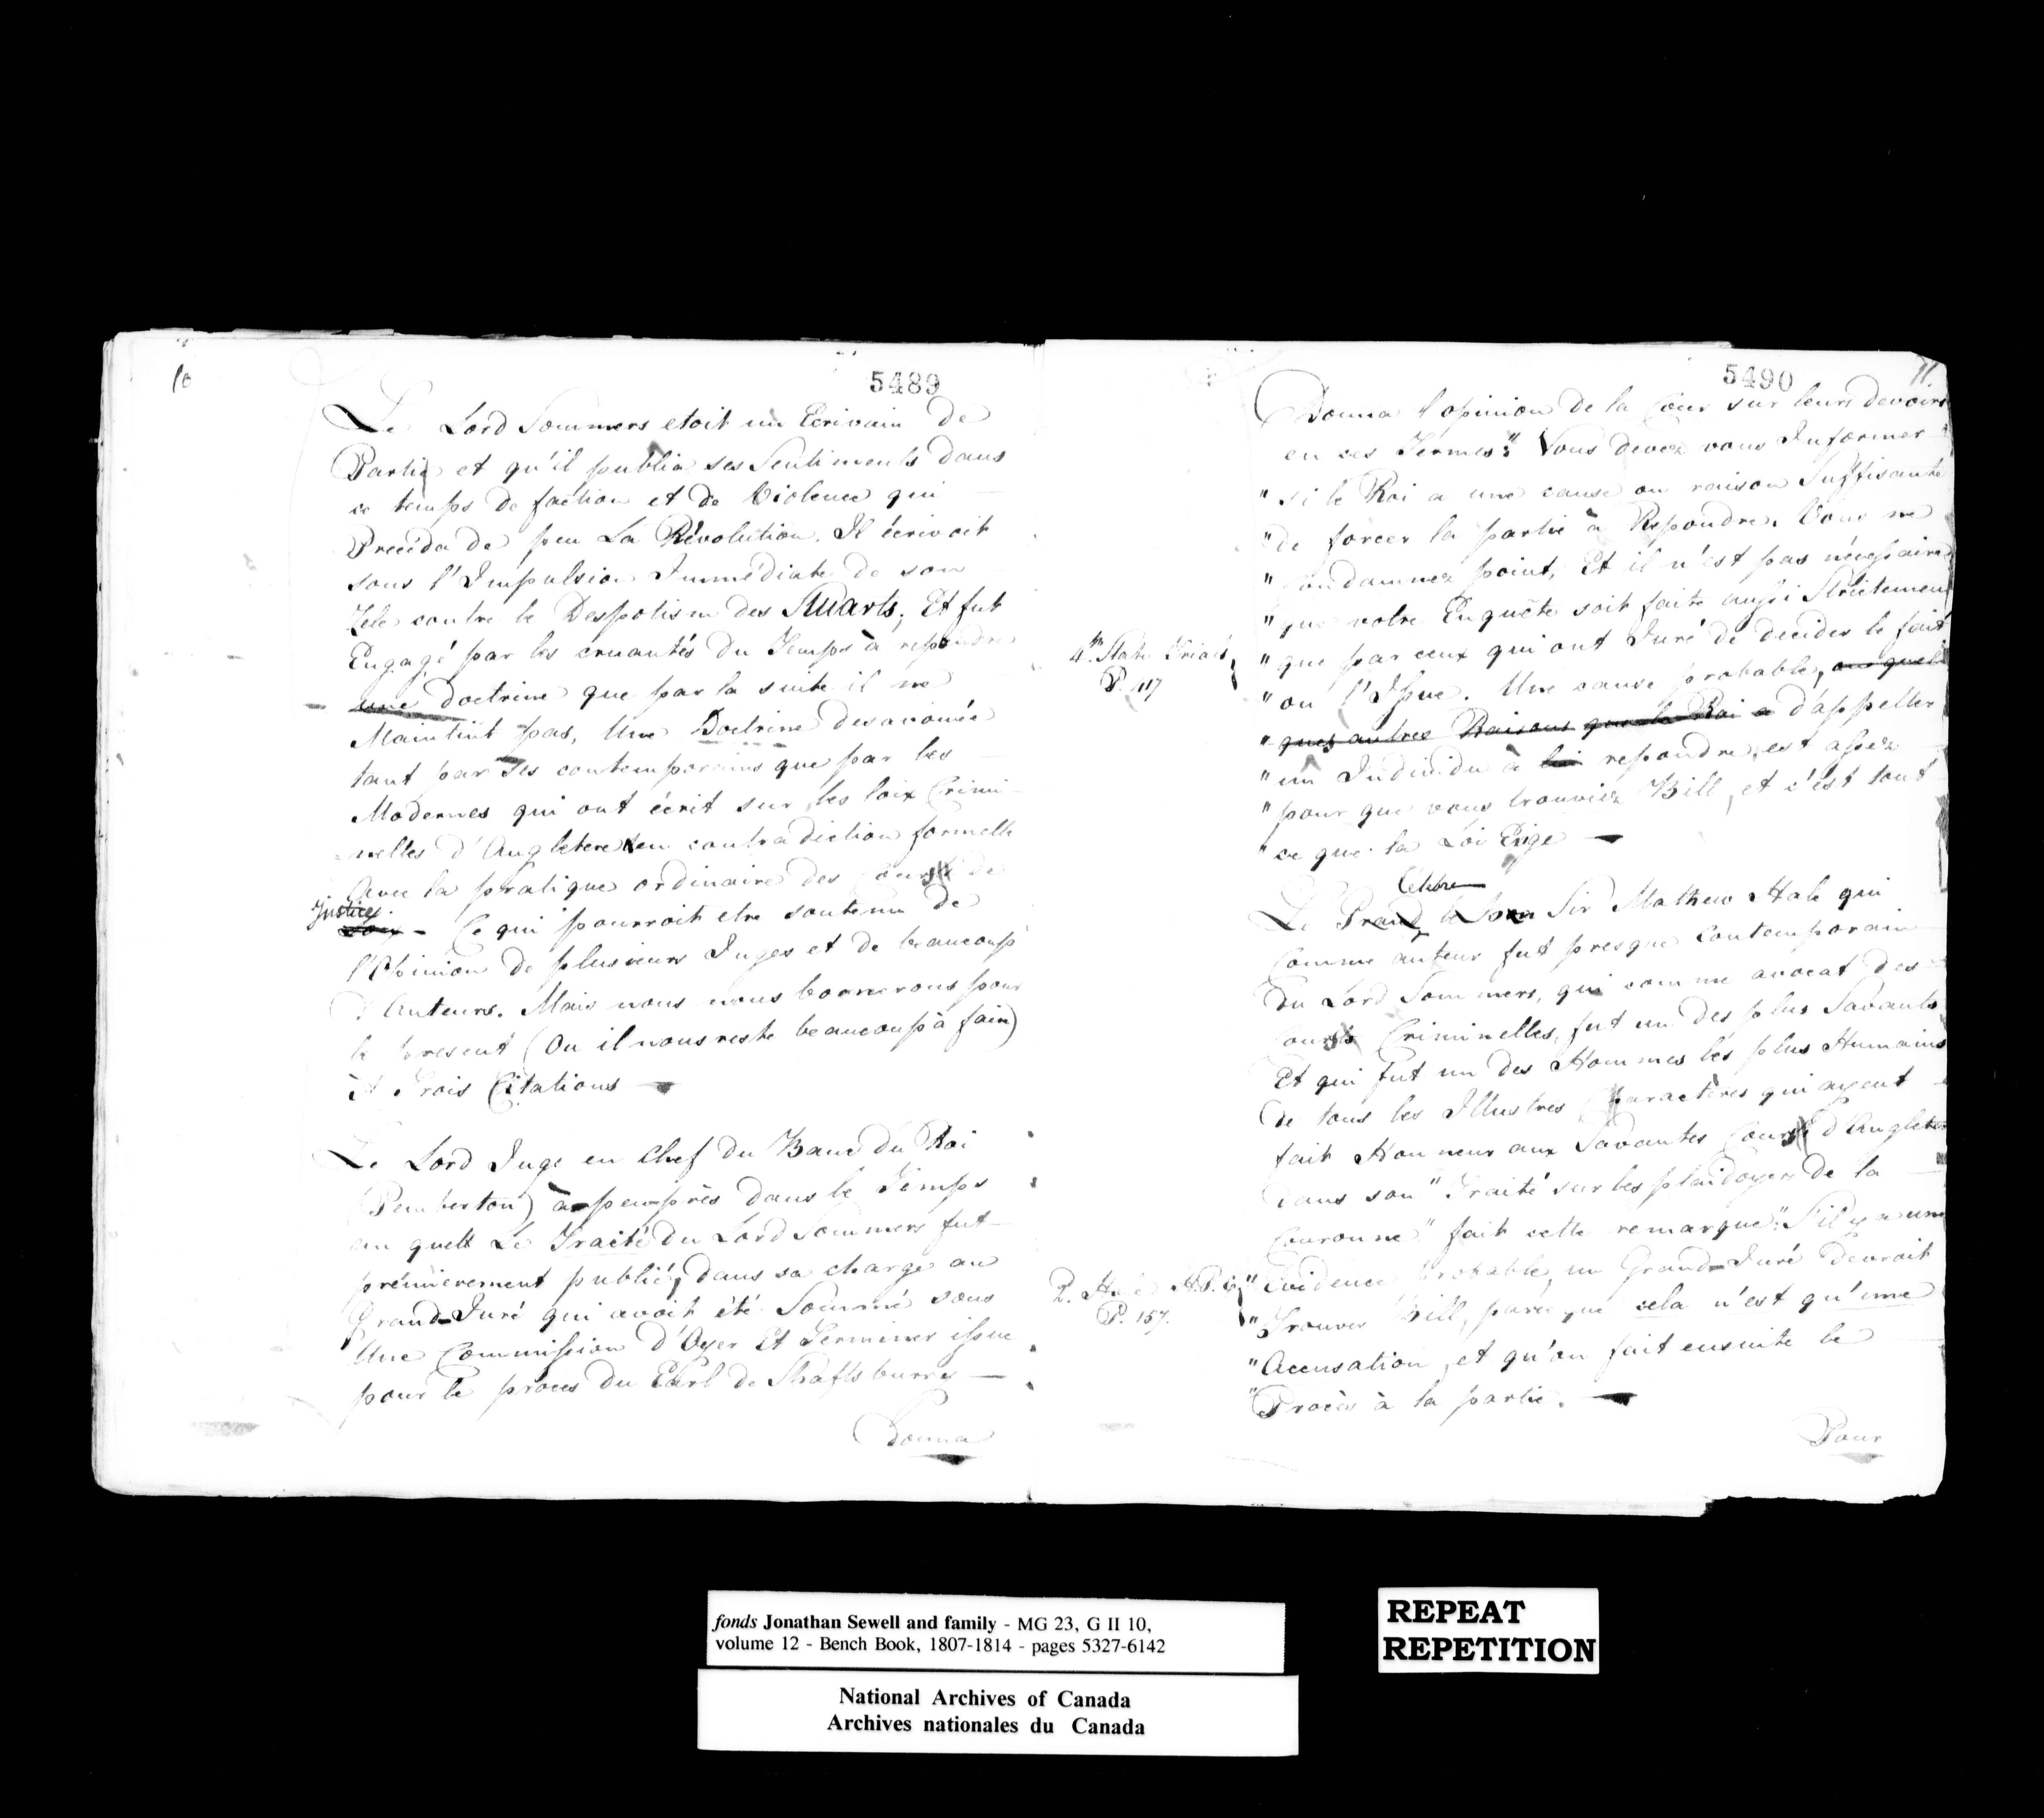 10
5489
Le Lord Sommers etoit un Ecrivain de
Partie et qu'il publia ses Sentiments dans
ce temps de faction et de Violence qui
Preceda de peu La Révolution. Il écrivoit
sous l'Impulsion Immédiate de son
Zele contre le Despotism des Stuarts; Et fut
Engagé par les cruautés du Temps à repondre
une Doctrine que par la suite il ne
Maintint pas, Une Doctrine desavouée
tant par ses contemporains que par les
Modernes qui ont écrit sur les loix Crimi-
nelles d'Angletere en contradiction formelle
Avec la pratique ordinaire des Cours de
Justice
Loix - Ce qui pourroit etre soutenu de
l'Opinion de plusieurs Juges et de beaucoup
d'Auteurs. Mais nous nous bornerons pour
le present (Ou il nous reste beaucoup à faire)
à Trois Citations —
Le Lord Juge en Chef du Banc du Roi
(Pemberton) à peu près dans le Temps
au quell Le Traité du Lord Sommers fut
prémièrement publié, dans sa charge au
Grand-Juré qui avoit été Sommé sous
Une Commission d'Oyer Et Terminer issue
pour le proces du Earl de Shaftsburry —
Donna
5490
11.
Donna l'opinion de la Cour sur leurs devoirs
en ces Termes: " Vous devez vous Informer
" si le Roi a une cause ou raison Suffisante
" de forcer la partie à Repondre. Vous ne
" Condamnez point, Et il n'est pas nécessaire
" que votre Enquête soit faite aussi Strictement
4th State Trials,
P. 117
" que par ceux qui ont Juré de decider le fait
" ou l'Issue. Une cause probable, ou quel
" ques autres Raisons que le Roi a d'appeller
" un Individu à lui repondre, est assez
" pour que vous trouviez Bill, et c'est tout
" ce que la Loi Exige —
Celebre
Le Grand Sir Mathew Hale qui
Comme auteur fut presque Contemporain
Du Lord Sommers, qui comme avocat des
Cours Criminelles, fut un des plus Savants
Et qui fut un des Hommes les plus Humains
De tous les Illustres Caractères qui ayent
fait Honneur aux Savantes Cours d'Angleter
Dans son " Traité sur les plaidoyers de la
Couronne " fait cette remarque: " S'il y a une
2. Hale H.P.C.
P. 157.
" Evidence probable, un Grand-Juré devroit
" Trouver Bill, parceque cela n'est qu'une
" Accusation, et qu'on fait ensuite le
" Procès à la partie. —
Pour
fonds Jonathan Sewell and family - MG 23, G II 10,
volume 12 - Bench Book, 1807-1814 - pages 5327-6142
National Archives of Canada
Archives nationales du Canada
REPEAT
REPETITION